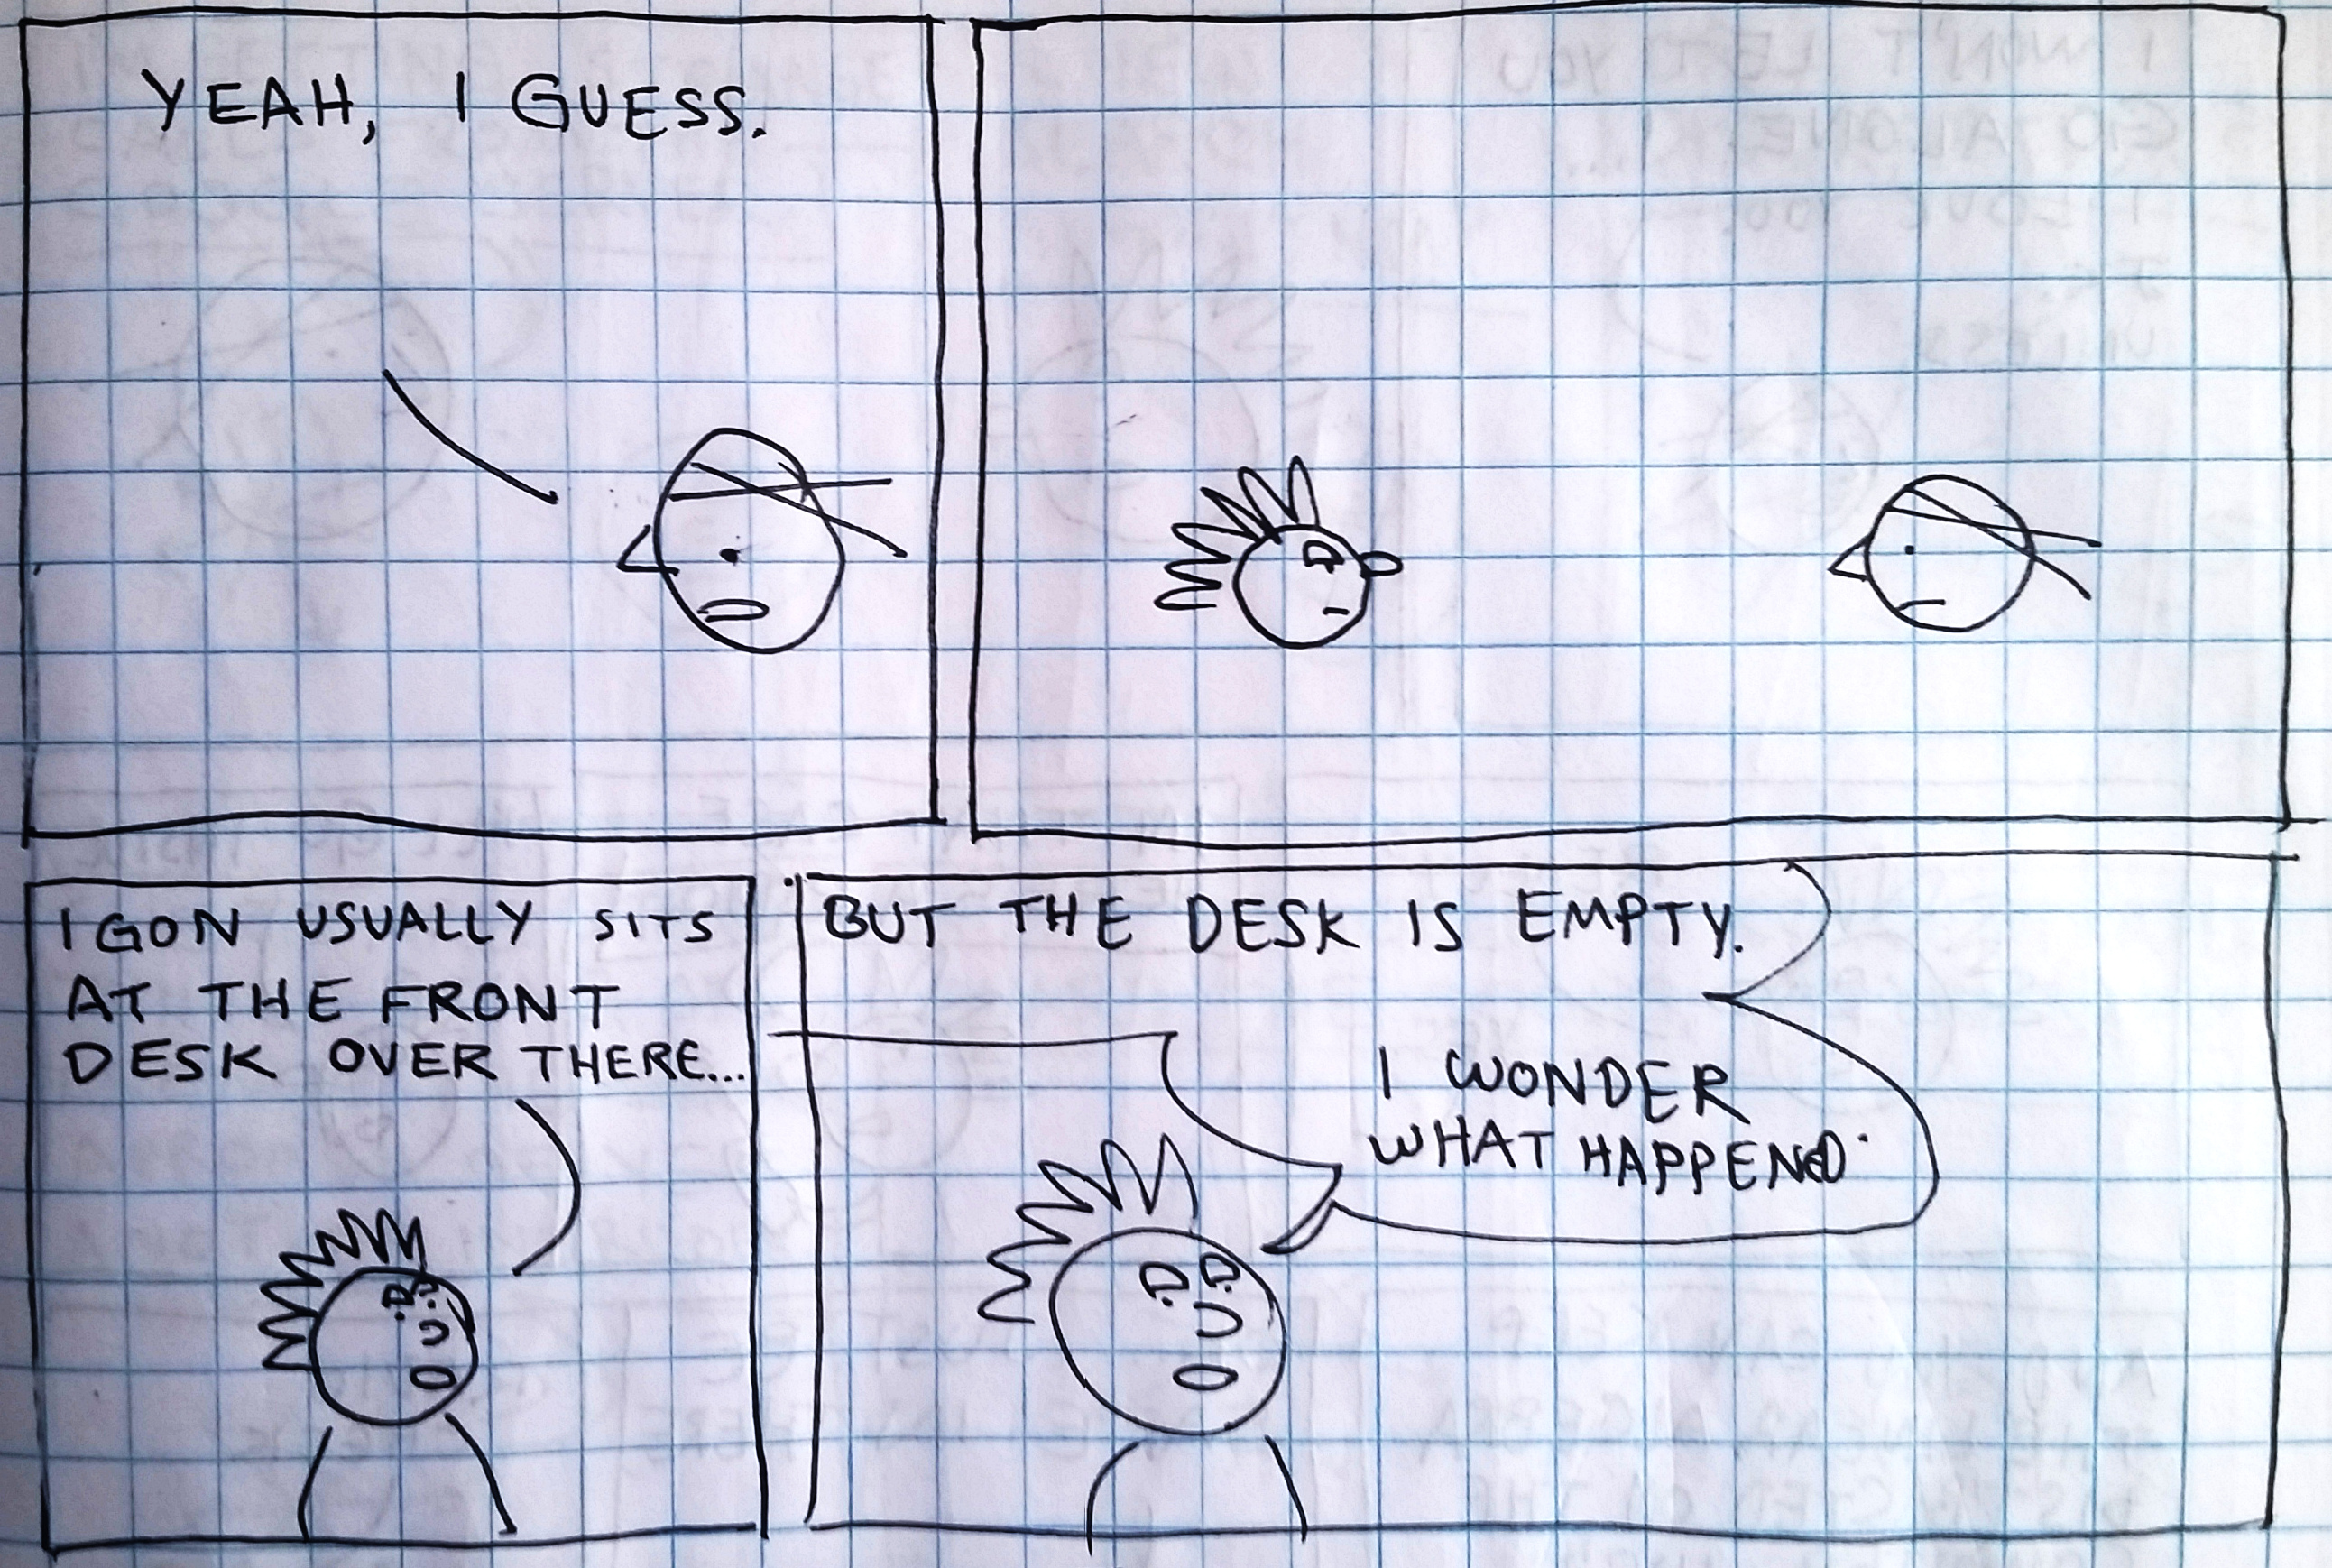 YEAH, I GUESS.
IGON USUALLY SITS
AT THE FRONT
DESK OVER THERE...
BUT THE DESK IS EMPTY.
I WONDER
WHAT HAPPENED.